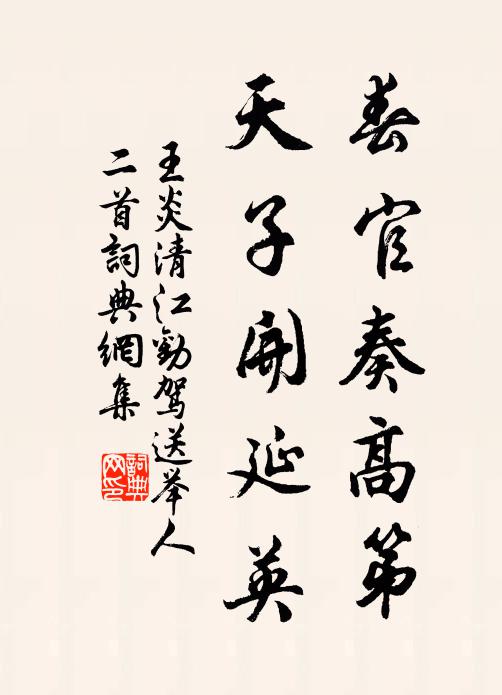 春官奏高第
天子開延英
王炎清江勸駕送举人
二首詞典網集
詞典網印